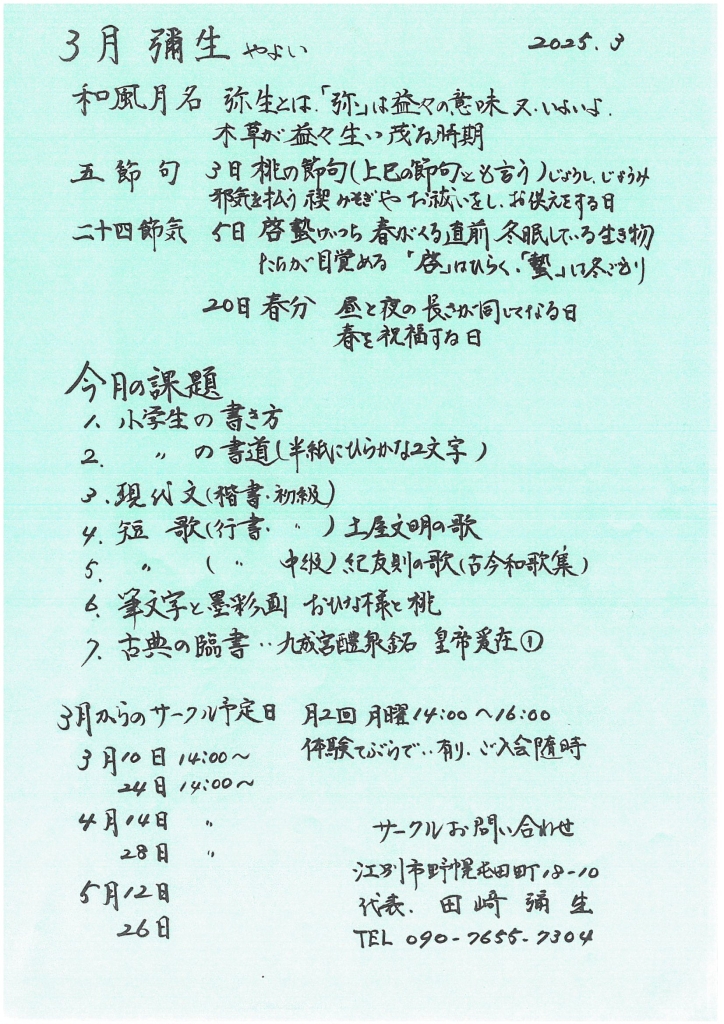 3月 彌生 やよい 2025.3
和風月名 弥生とは、「弥」は益々の意味 又、いよいよ、
木草が益々生い茂る時期
五節句 3日 桃の節句(上巳の節句とも言う)じょうし、じょうみ
邪気を払う 禊 みそぎや お祓いをし、お供えをする日
二十四節気 5日 啓蟄けいちつ 春がくる直前 冬眠している生き物
たちが目覚める 「啓」はひらく、「蟄」は冬ごもり
20日 春分 昼と夜の長さが同じになる日
春を祝福する日
今月の課題
1. 小学生の書き方
2. 〃 の書道(半紙にひらがな2文字)
3. 現代文(楷書・初級)
4. 短歌(行書・〃)土屋文明の歌
5. 〃 (〃 中級)紀友則の歌(古今和歌集)
6. 筆文字と墨彩画 おひな様と桃
7. 古典の臨書‥九成宮醴泉銘 皇帝爰在①
3月からのサークル予定日 月2回 月曜14:00〜16:00
体験てぶらで‥有り、ご入会随時
3月10日 14:00〜
24日 14:00〜
4月14日 〃
28日 〃
5月12日
26日
サークルお問い合わせ
江別市野幌屯田町18-10
代表、田崎彌生
TEL 090-7655-7304